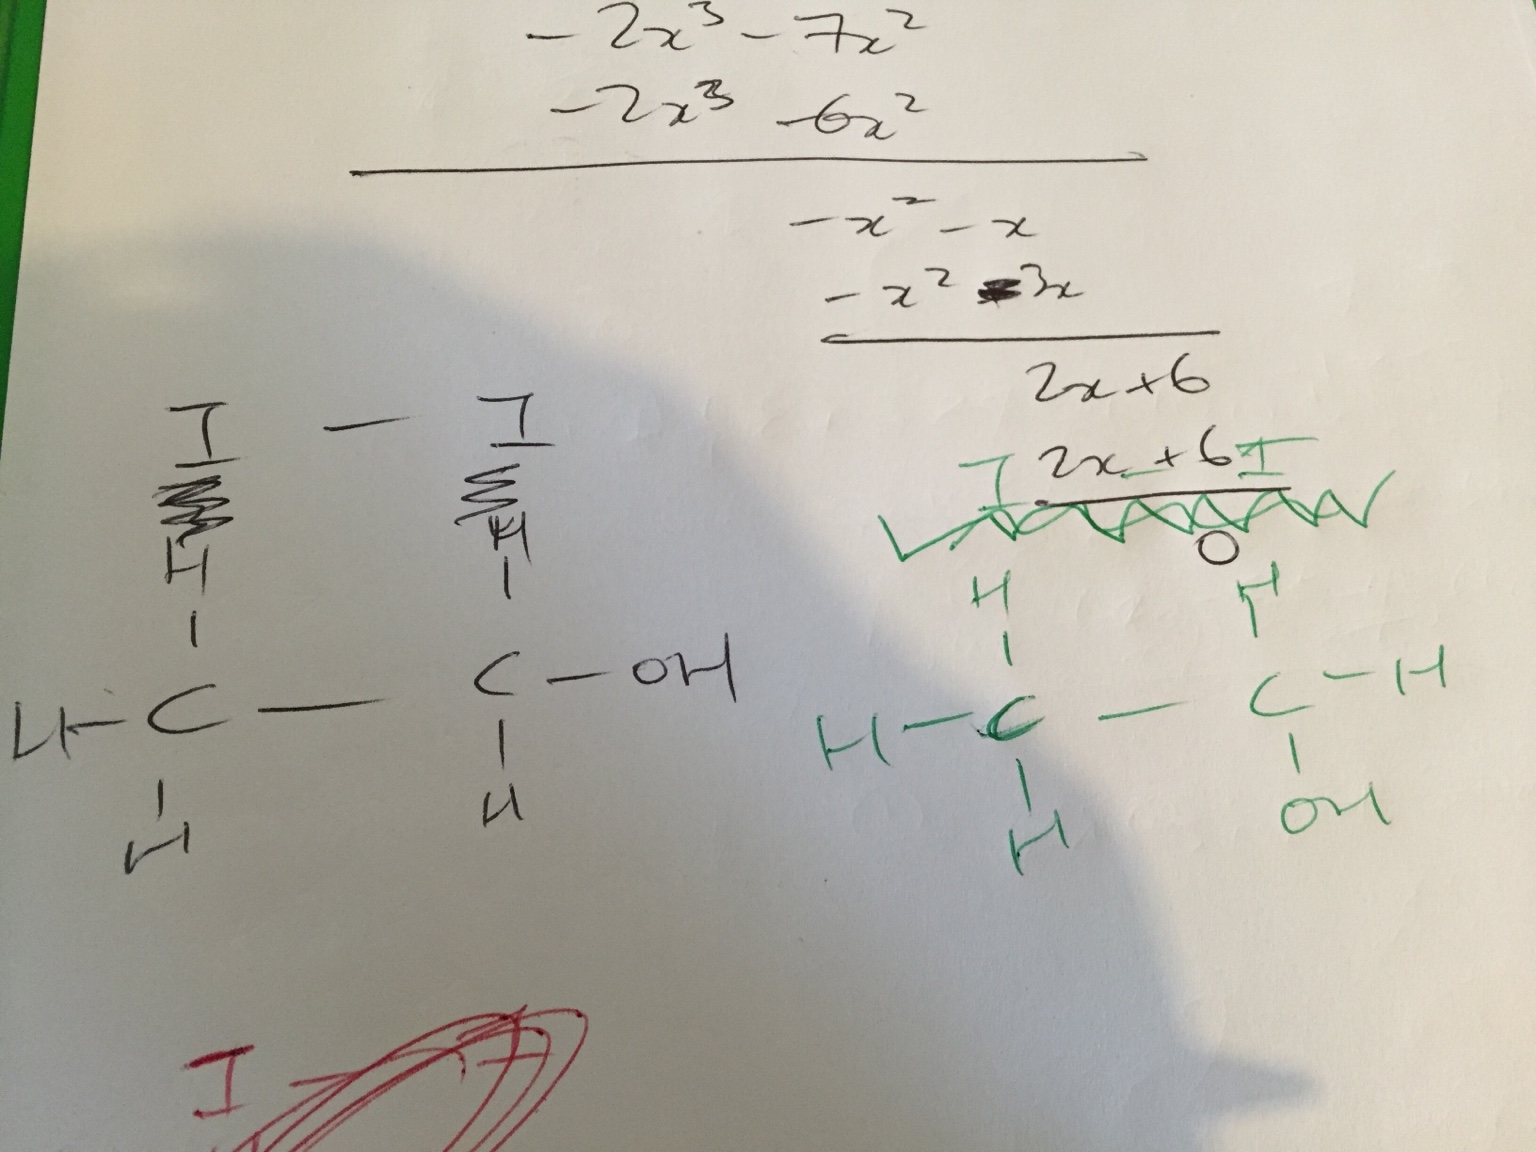 -2x³ - 7x²
-2x³ -6x²
-x² - x
-x² -3x
2x+6
2x+6
0
I - I
H H
H-C - C-OH
H H
I - I
H H
H-C - C-H
H OH
I